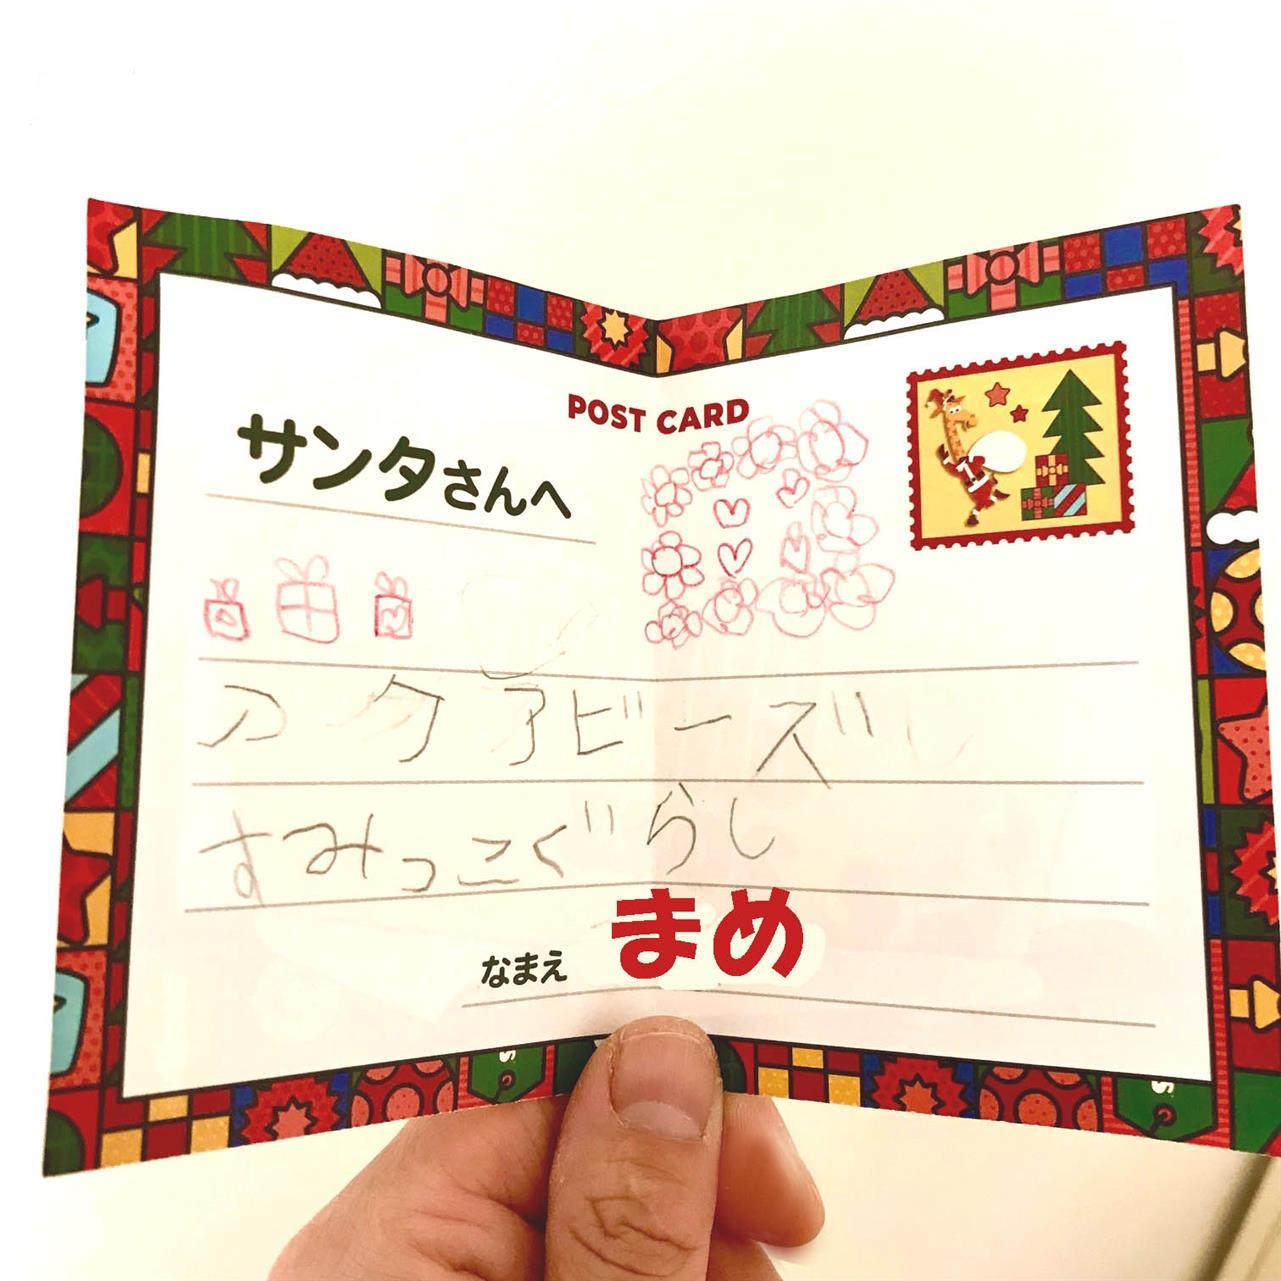 POST CARD
サンタさんへ
アクアビーズ
すみっこぐらし
なまえ まめ